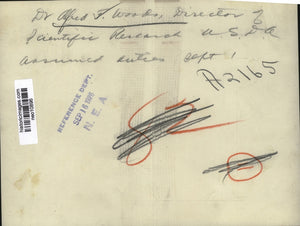 Dr Alfred F. Woods, Director of
Scientific Research U.S.D.A
assumed duties Sept 1
A2165
REFERENCE DEPT.
SEP 16 1926
N. E. A